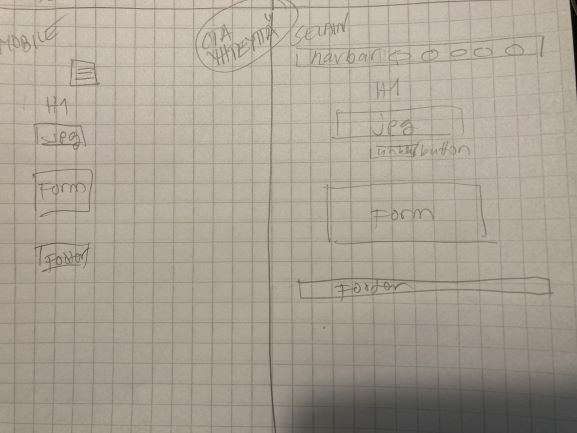 MOBILE
H1
jpg
Form
Footer
OTA
YHTEYTTÄ
SELAIN
navbar
H1
jpg
button
Form
Footer